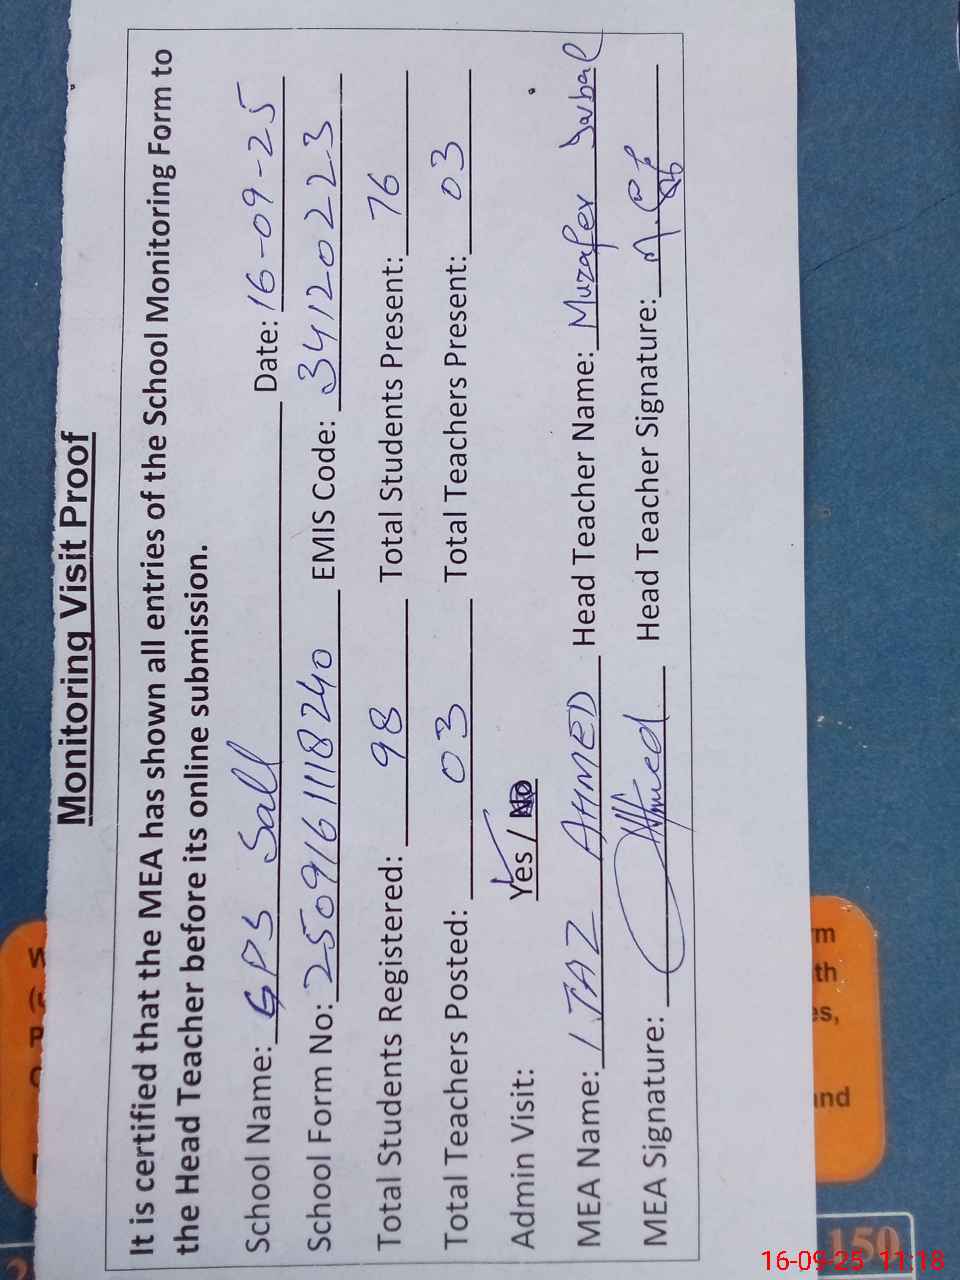 Monitoring Visit Proof
It is certified that the MEA has shown all entries of the School Monitoring Form to
the Head Teacher before its online submission.
School Name: GPS Sall Date: 16-09-25
School Form No: 2509161118240 EMIS Code: 34120223
Total Students Registered: 98 Total Students Present: 76
Total Teachers Posted: 03 Total Teachers Present: 03
Admin Visit: Yes / No
MEA Name: IJAZ AHMED Head Teacher Name: Muzafer
MEA Signature: Ahmed Head Teacher Signature:
150
16-09-25 11:18